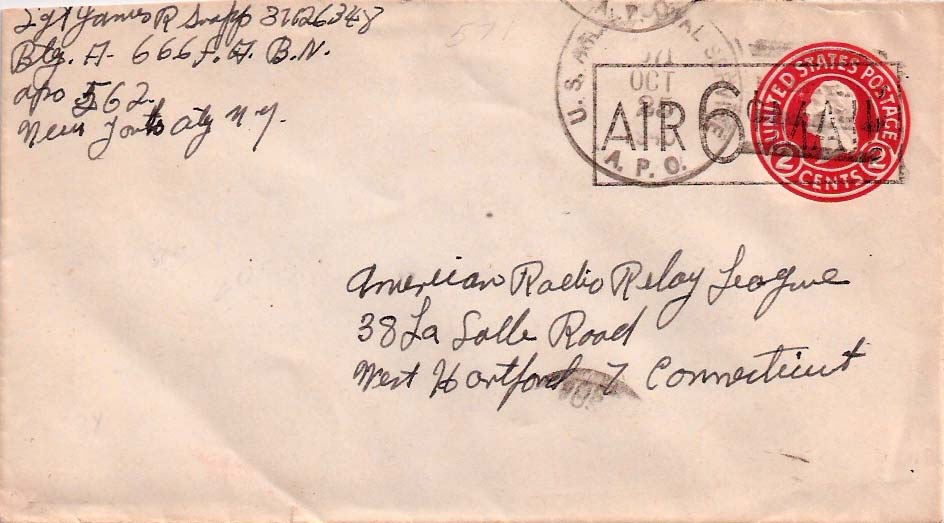 Sgt James R Swapp 37026348
Btry. A- 666 F. A. B.N.
apo 562
New York City N.Y.
U. S. ARMY POSTAL SERVICE
OCT
A. P. O.
AIR 6¢ MAIL
UNITED STATES POSTAGE
2 CENTS 2
American Radio Relay League
38 La Salle Road
West Hartford 7 Connecticut